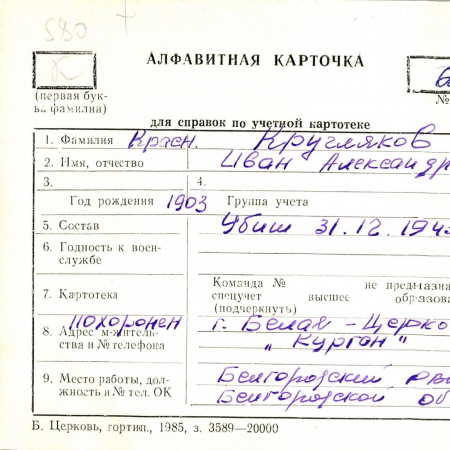 580
К
АЛФАВИТНАЯ КАРТОЧКА
(первая бук-
ва фамилии)
№
для справок по учетной картотеке
1. Фамилия Красн. Кругляков
2. Имя, отчество Иван Александр
3. 4.
Год рождения 1903 Группа учета
5. Состав Убит 31.12.194
6. Годность к воен-
службе
Команда № не предназна
7. Картотека спецучет высшее образова
(подчеркнуть)
похоронен г. Белая-Церко
8. Адрес м-житель-
ства и № телефона "Курган"
9. Место работы, дол- Белгородский РВ
жность и № тел. ОК Белгородской об
Б. Церковь, гортип., 1985, з. 3589—20000